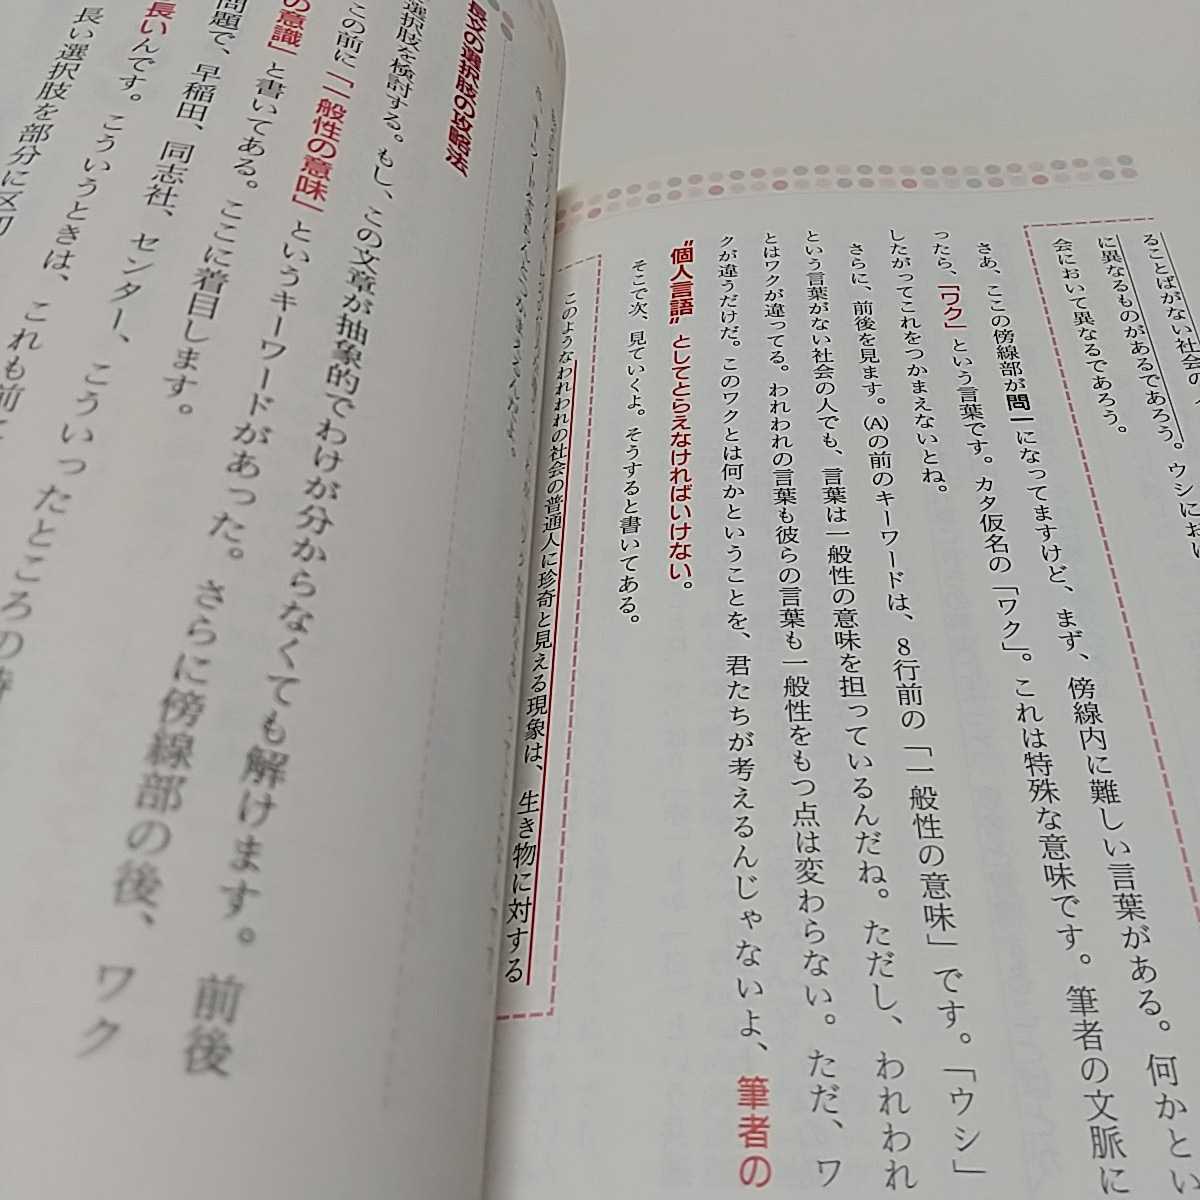 ることばがない社会の
に異なるものがあるであろう。ウシにおい
会において異なるであろう。
さあ、ここの傍線部が問一になってますけど、まず、傍線内に難しい言葉がある。何かとい
ったら、「ワク」という言葉です。カタ仮名の「ワク」。これは特殊な意味です。筆者の文脈に
したがってこれをつかまえないとね。
さらに、前後を見ます。(A)の前のキーワードは、8行前の「一般性の意味」です。「ウシ」
という言葉がない社会の人でも、言葉は一般性の意味を担っているんだね。ただし、われわれ
とはワクが違ってる。われわれの言葉も彼らの言葉も一般性をもつ点は変わらない。ただ、ワ
クが違うだけだ。このワクとは何かということを、君たちが考えるんじゃないよ、筆者の
"個人言語"としてとらえなければいけない。
そこで次、見ていくよ。そうすると書いてある。
このようなわれわれの社会の普通人に珍奇と見える現象は、生き物に対する
長文の選択肢の攻略法
選択肢を検討する。もし、この文章が抽象的でわけが分からなくても解けます。前後
この前に「一般性の意味」というキーワードがあった。さらに傍線部の後、ワク
の意識」と書いてある。ここに着目します。
問題で、早稲田、同志社、センター、こういったところの
長いんです。こういうときは、これも前
長い選択肢を部分に区切